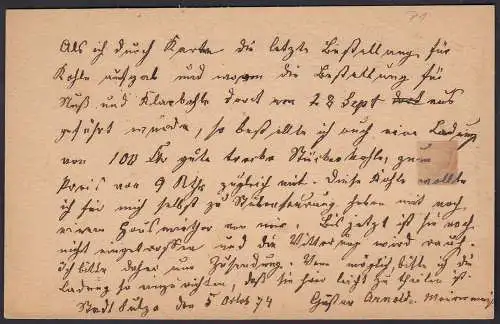 Als ich durch Karte die letzte Bestellung für
Kohle aufgab und wovon die Bestellung für
Nuß und Klarkohle dort von 28 Sept dort aus
geführt wurde, so bestellte ich auch eine Ladung
von 100 Ctr gute Stückenkohle, zum
Preis von 9 Rthr zugleich mit. Diese Kohle wollte
ich für mich selbst zu Stubenfeurung haben mit noch
einem Hauswirther von mir. Bis jetzt ist sie noch
nicht eingetroffen und die Witterung wird rauh.
Ich bitte daher um Zusendung. Wenn möglich bitte ich die
Ladung so einzurichten, daß sie hier leicht zu theilen ist
Stadt Sulza den 5 Octob 74 Gustav Arnold